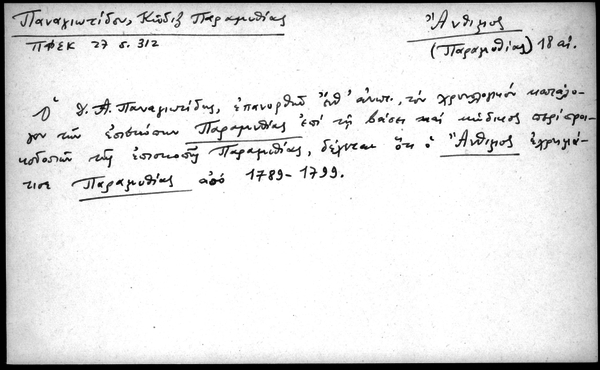 Παναγιωτίδου, Κῶδιξ Παραμυθίας
ΠΦΕΚ 27 σ. 312
Ἄνθιμος
(Παραμυθίας) 18 αἰ.
Ὁ κ. Α. Παναγιωτίδης, ἐπανορθῶν ἐνθ' ἀνωτ., τόν χρονολογικόν κατάλο-
γον τῶν ἐπισκόπων Παραμυθίας ἐπί τῇ βάσει καί κώδικος περί προι-
κοδοσιῶν τῆς ἐπισκοπῆς Παραμυθίας, δέχεται ὅτι ὁ Ἄνθιμος ἐχρημά-
τισε Παραμυθίας ἀπό 1789-1799.